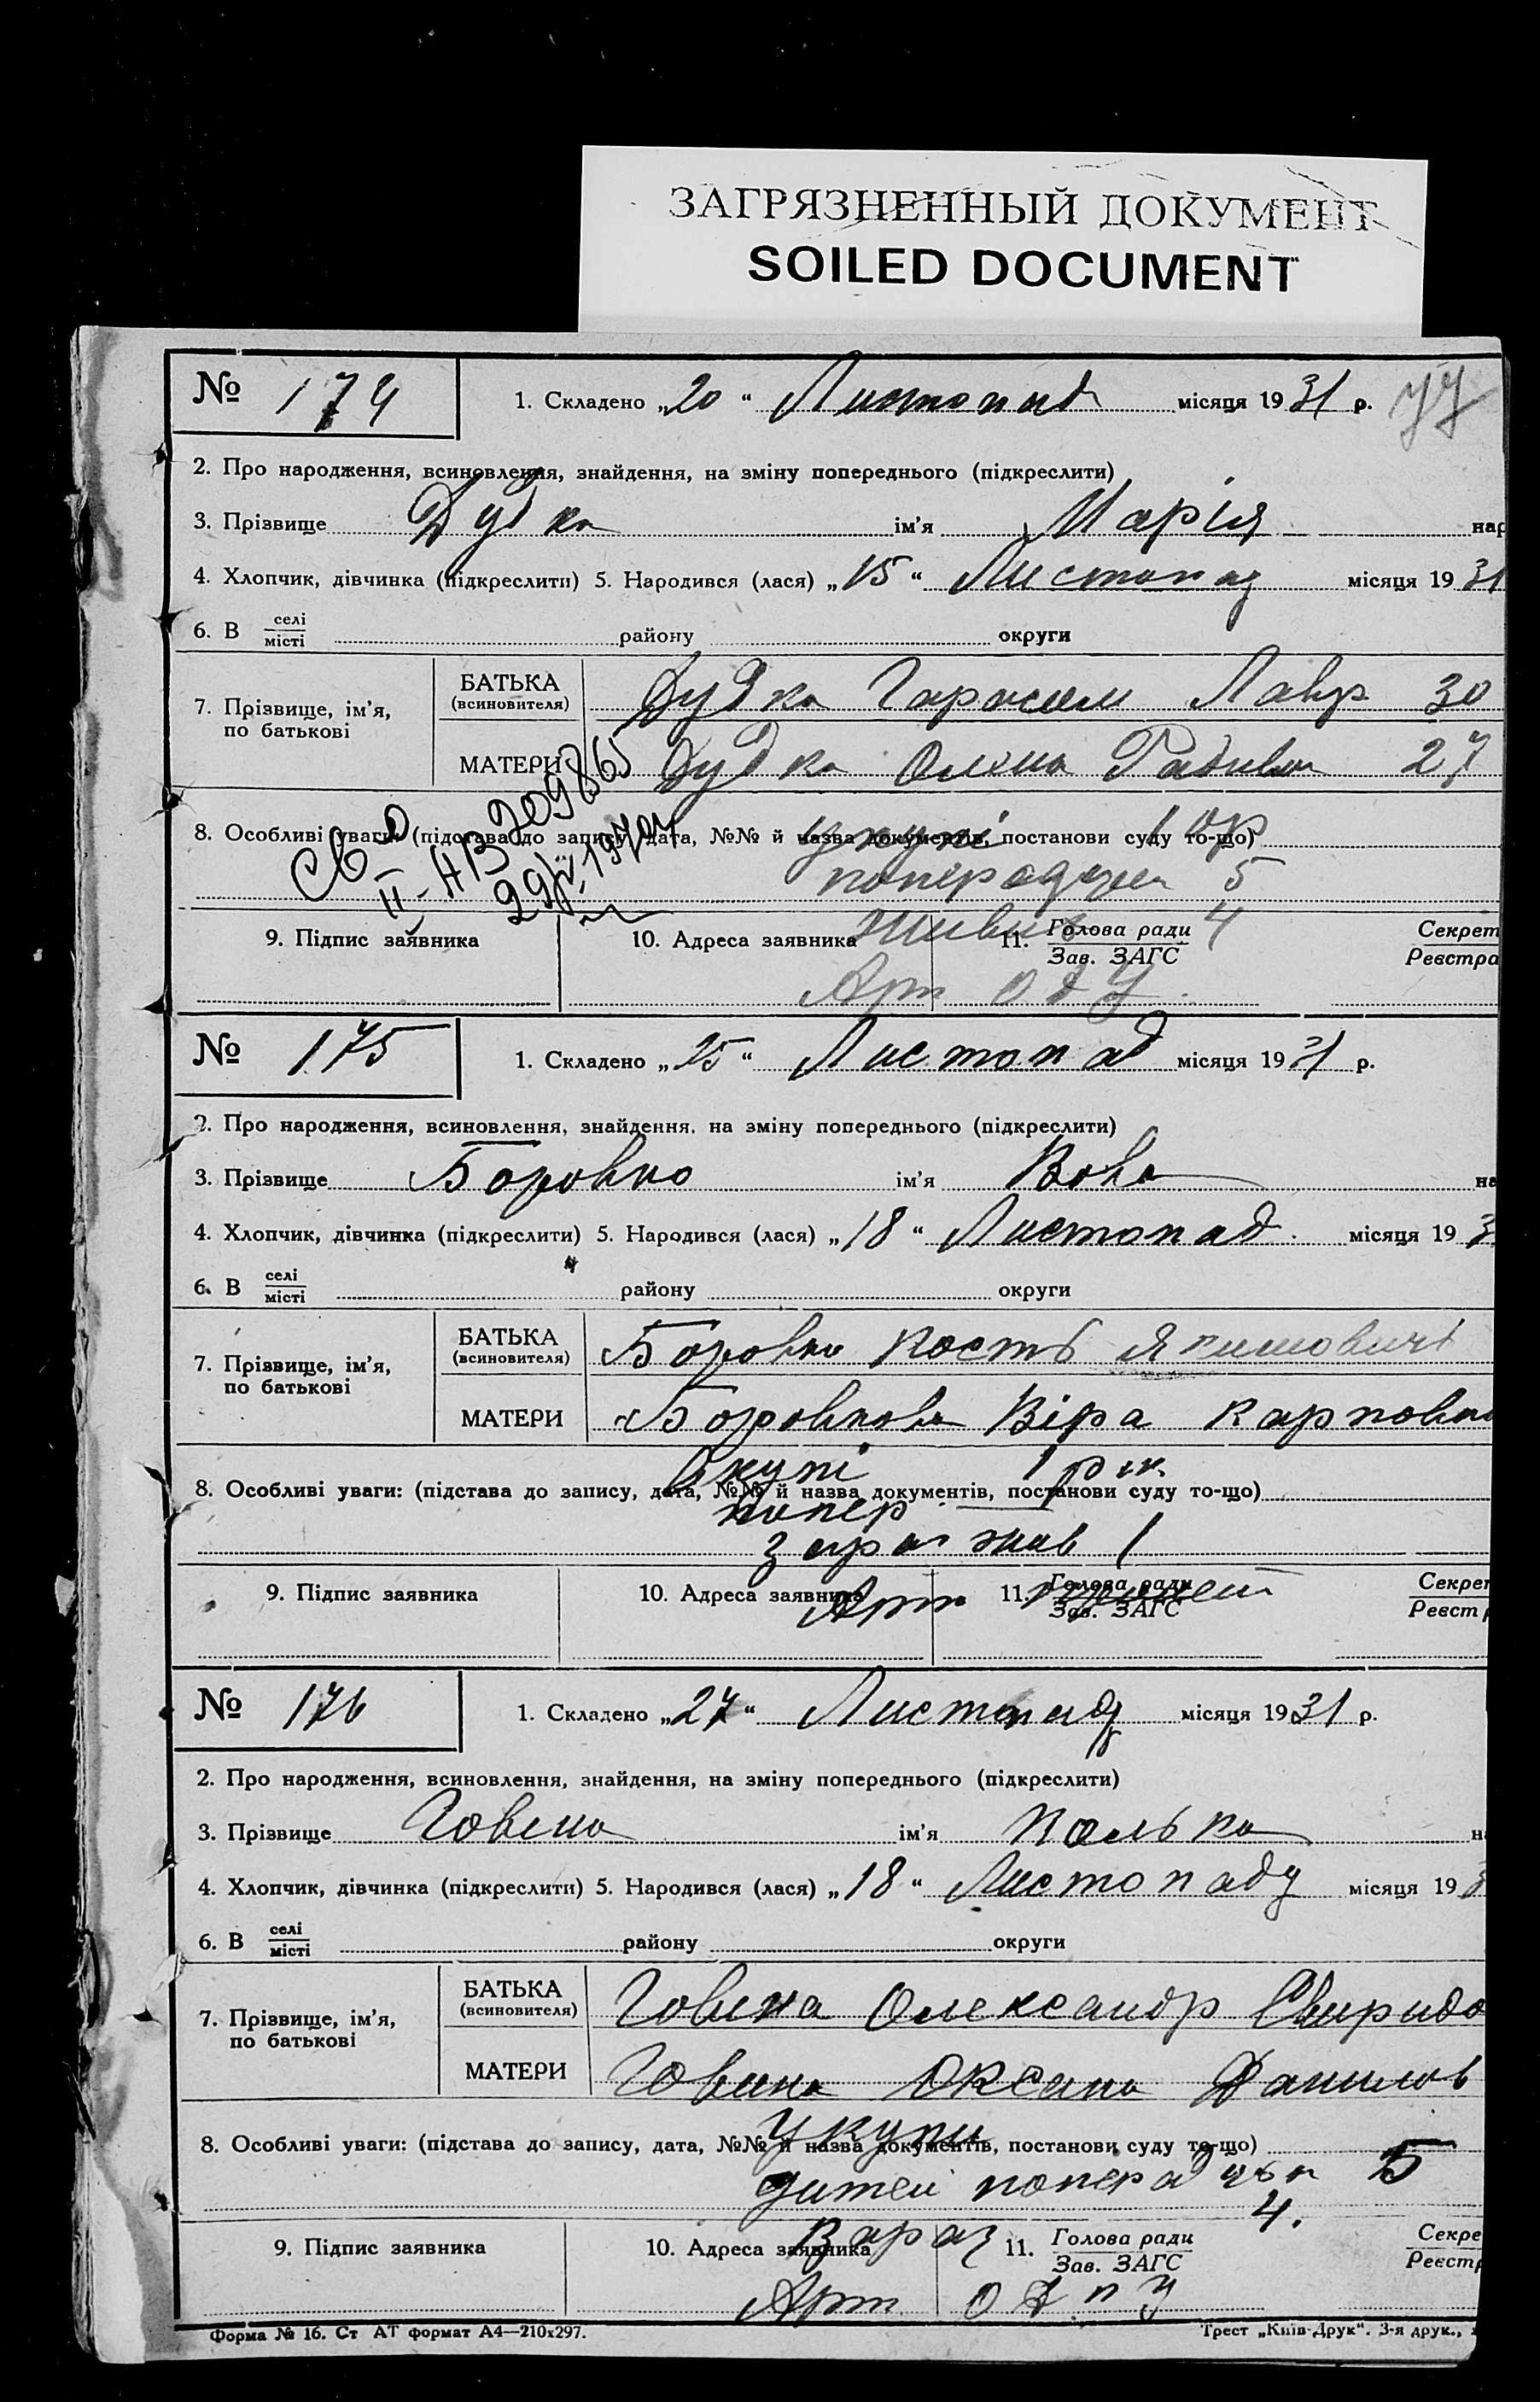 ЗАГРЯЗНЕННЫЙ ДОКУМЕНТ
SOILED DOCUMENT
№ 174 1. Складено „20“ Листопад місяця 1931 р.
2. Про народження, всиновлення, знайдення, на зміну попереднього (підкреслити)
3. Прізвище Дудка ім’я Марія нар
4. Хлопчик, дівчинка (підкреслити) 5. Народився (лася) „15“ Листопад місяця 1931
6. В селі місті району округи
7. Прізвище, ім’я, по батькові
БАТЬКА (всиновителя) Дудка Гарасим Лавр 30
МАТЕРИ Дудка Олена 27
8. Особливі уваги: (підстава до запису, дата, №№ й назва документів, постанови суду то-що)
укупі
Св-о
II-АВ 209865
5
живих 4
9. Підпис заявника 10. Адреса заявника 11. Голова ради Зав. ЗАГС Секрет Реєстра
Арт
№ 175 1. Складено „25“ Листопад місяця 1931 р.
2. Про народження, всиновлення, знайдення, на зміну попереднього (підкреслити)
3. Прізвище Боровко ім’я Вова на
4. Хлопчик, дівчинка (підкреслити) 5. Народився (лася) „18“ Листопад місяця 193
6. В селі місті району округи
7. Прізвище, ім’я, по батькові
БАТЬКА (всиновителя) Боровко Кость Якимович
МАТЕРИ Боровкова Віра Карповна
Вкупі 1 рік
8. Особливі уваги: (підстава до запису, дата, №№ й назва документів, постанови суду то-що)
попер —
зараз жив 1
9. Підпис заявника 10. Адреса заявника 11. Голова ради Зав. ЗАГС Секрет Реєстр
Арт
№ 176 1. Складено „27“ Листопад місяця 1931 р.
2. Про народження, всиновлення, знайдення, на зміну попереднього (підкреслити)
3. Прізвище Говина ім’я Полька на
4. Хлопчик, дівчинка (підкреслити) 5. Народився (лася) „18“ Листопаду місяця 193
6. В селі місті району округи
7. Прізвище, ім’я, по батькові
БАТЬКА (всиновителя) Говина Олександр Свиридо
МАТЕРИ Говина Оксана Данилов
Укупи
8. Особливі уваги: (підстава до запису, дата, №№ й назва документів, постанови суду то-що)
дитей 5
Зараз 4.
9. Підпис заявника 10. Адреса заявника 11. Голова ради Зав. ЗАГС Секре Реєстр
Арт
Форма № 16. Ст АТ формат А4—210x297. Трест „Київ-Друк“. 3-я друк.,